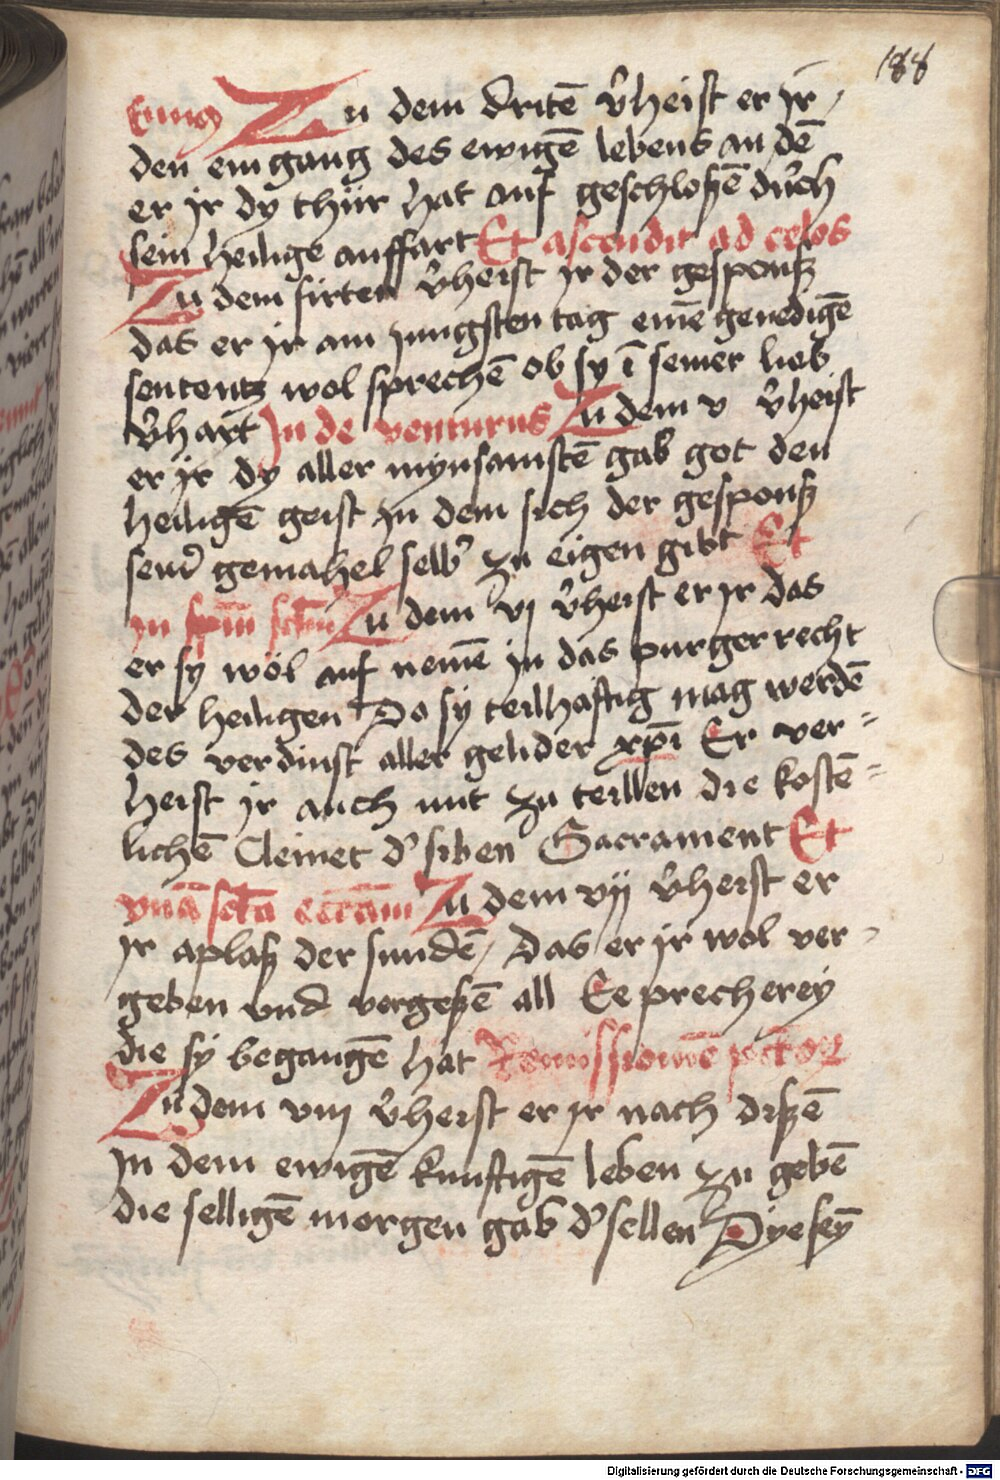 188
Zu dem dritē v̉heist er ir /
den eingang des ewigē lebens an dē
er jr dy thür hat auf geschloßē durch
sein heilige auffart Et ascendit ad celos
Zu dem firten v̉heist jr der gesponß
das er jr am jungsten tag einē genedigē
sententz wol sprechē ob sy ī seiner lieb
v̉hart In de venturus Zu dem v v̉heist
er jr dy aller mynsamstē gab got den
heiligē geist In dem sich der gesponß
seinr̉ gemahel selb̉ zu eigen gibt Et
in spm̄ sctm̄ Zu dem vj v̉heist er jr das
er sy wöl auf nemē in das purger recht
der heiligen Do sy teilhaftig mag werdē
des verdinst aller gelider xp̄i Er ver=
heist jr auch mit zu teillen die kostē=
lichē Cleinet d̉ siben Sacrament Et
vnā sctā eccām Zu dem vij v̉heist er
jr aplaß der sundē / Das er jr wol ver-
geben vnd vergeßē all Eeprecherey
die sy begangē hat Remissionē pctōꝝ
Zu dem viij v̉heist er jr nach dißē
In dem ewigē kunftigē leben zu gebē
die selligē morgen gab d̉ sellen Dye sey̅
Digitalisierung gefördert durch die Deutsche Forschungsgemeinschaft - DFG